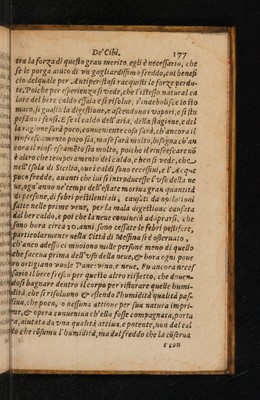 De' Cibi. 177
tra la forza di questo gran merito, egli è necessario, che
se le porga aiuto di vn gagliardissimo freddo, col benefi
cio del quale per Antiperistasi racquisti le forze perdu-
te. Poiche per esperienza si vede, che l'istesso natural ca
lore del bere caldo essala e si risolue, s'indebolisce lo sto
maco, si guasta la digestione, e ascendono i vapori, e si stu
pefanno i sensi. E se il caldo dell'aria, della stagione, e del
la ragione sarà poco, conueniente cosa sarà, ch'ancora il
rinfrescamento poco sia, ma se sarà molto, bisogna ch'an
cora il rinfrescameto sia molto, poiche il rinfrescare nõ
è altro che temperamento del caldo, e ben si vede, che
nell'Isola di Sicilia, oue i caldi sono eccessiui, e l'Acque
poco fredde, auanti che iui s'introducesse l'vso della ne
ue, ogn'anno ne' tempi dell'estate moriua gran quantità
di persone, di febri pestilentiali, causati da opilationi
fatte nelle prime vene, per la mala digestione causata
dal ber caldo, e poi che la neue cominciò adoprarsi, che
sono hora circa 30. anni, sono cessate le febri pestifere,
particolarmente nella Città di Messina si è osseruato,
ch'anco adesso ci muoiono mille persone meno di quello
che faceua prima dell'vso della neue, & hora ogni poue
ro artigiano vuole Pane, vino, e neue. Fu ancora necef
sario il bere fresco per questo altro rispetto, che douen-
dosi bagnare dentro il corpo per ristorare quelle humi-
dità, che si risoluono & essendo l'humidità qualità pas-
siua, che poco, o nessuna attione per sua natura impri-
me, & opera conueniua ch'ella fosse compagnata, porta
ta, aiutata da vna qualità attiua, e potente, non dal cal
do che cõsuma l'humidità, ma dal freddo che la cõserua
e con